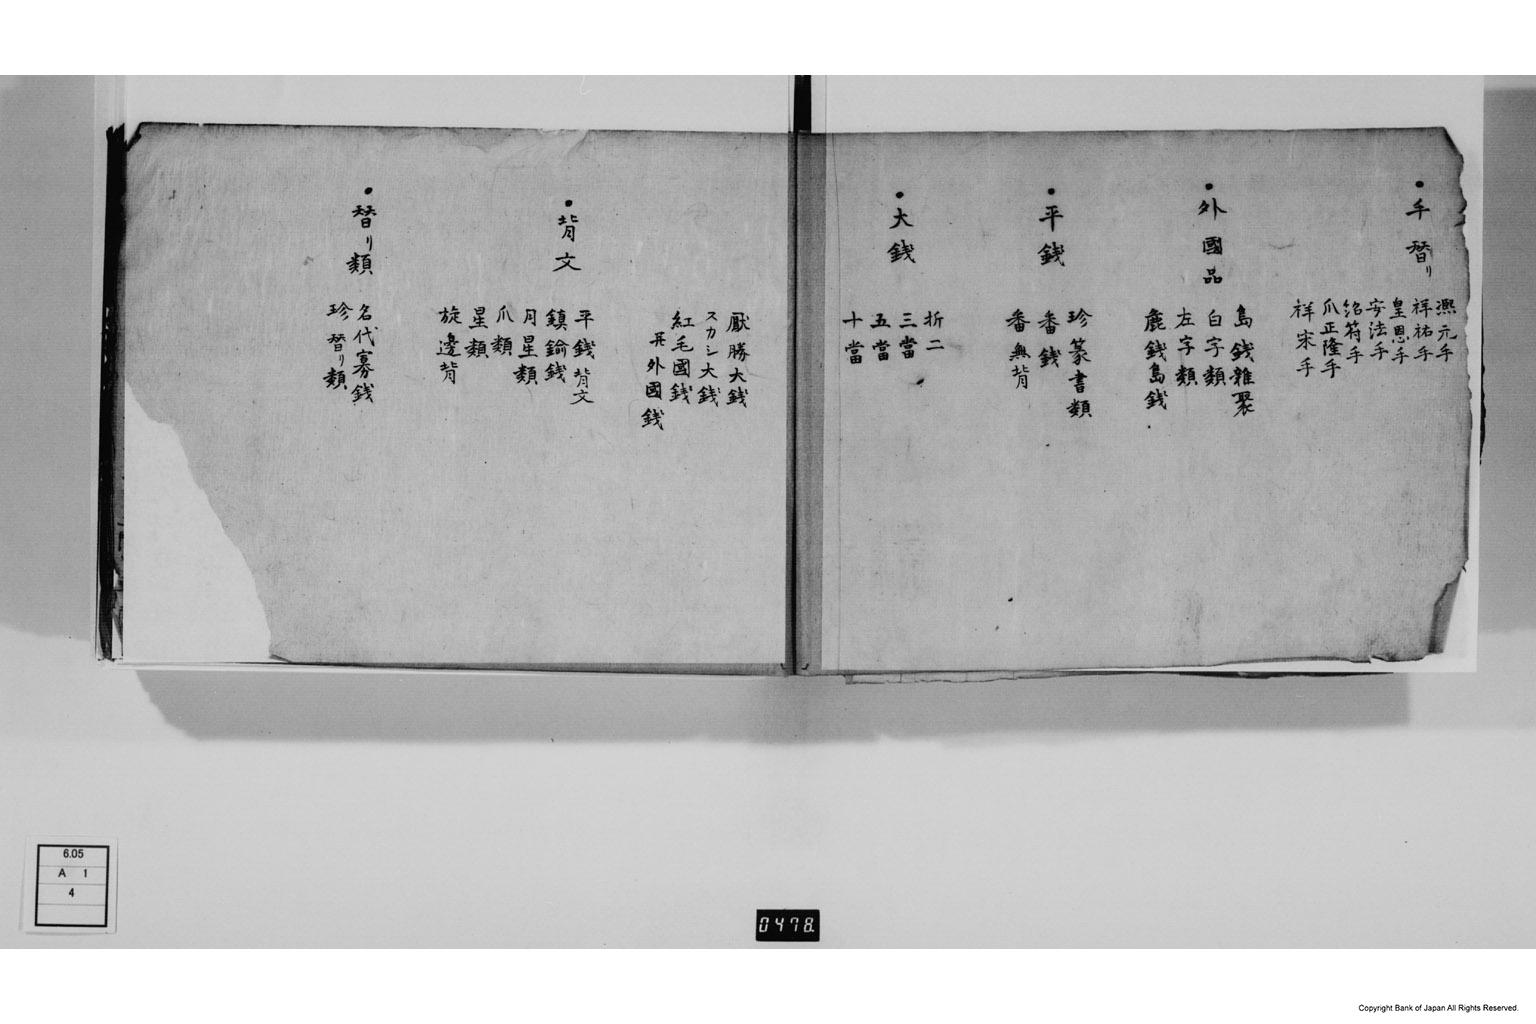 ・手替リ
熈元手
祥祐手
皇恩手
安法手
紹符手
爪正隆手
祥宋手
・外國品
島銭雑聚
白字類
左字類
鹿銭島銭
・平銭
珍篆書類
番銭
番無背
・大銭
折二
三當
五當
十當
厭勝大銭
スカシ大銭
紅毛國銭
并外國銭
・背文
平銭背文
鎮鍮銭
月星類
爪類
星類
旋邊背
・替リ類
名代寡銭
珍替リ類
6.05
A 1
4
0478
Copyright Bank of Japan All Rights Reserved.